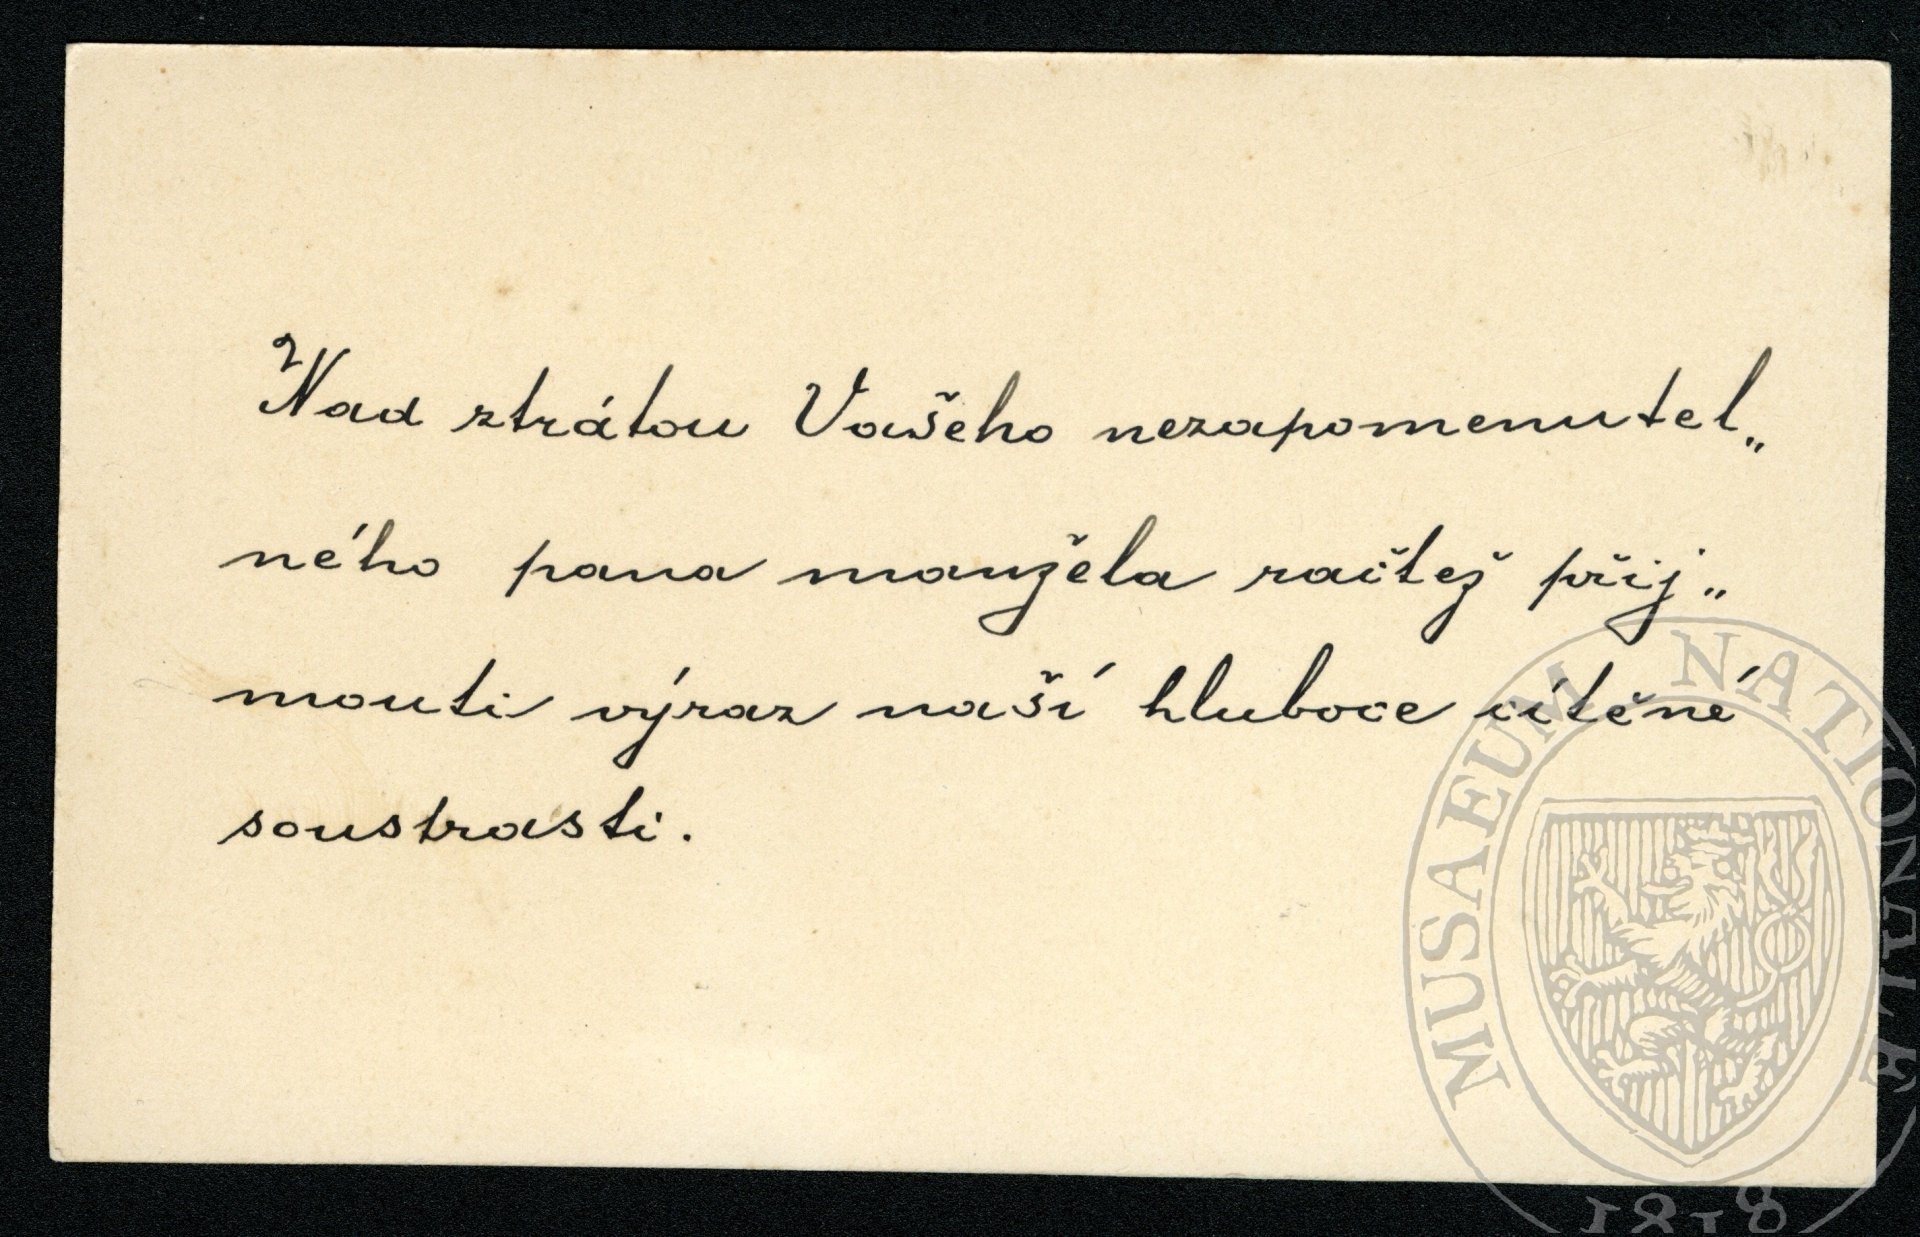 Nad ztrátou Vašeho nezapomenutel„
ného pana manžela račtež přij„
mouti výraz naší hluboce cítěné
soustrasti.
MUSAEUM NATIONALE
1818